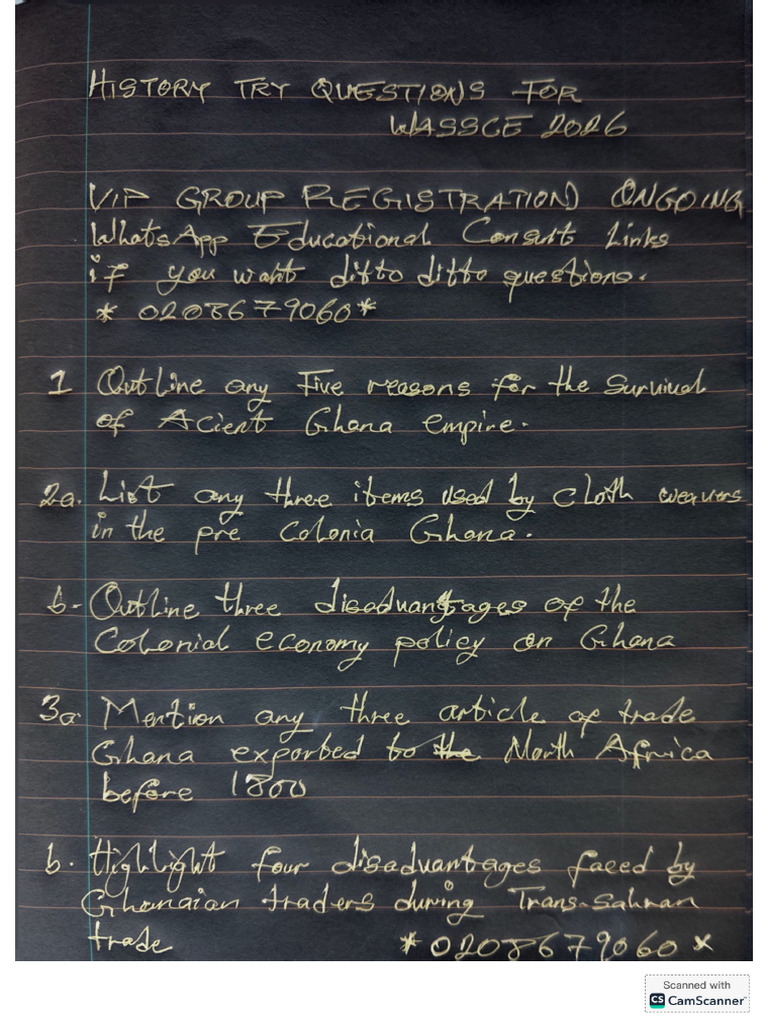 HISTORY TRY QUESTIONS FOR
WASSCE 2026
VIP GROUP REGISTRATION ONGOING
WhatsApp Educational Consult Links
if you want ditto ditto questions.
* 0208679060*
1 Outline any Five reasons for the Survival
of Acient Ghana empire.
2a. List any three items used by cloth weavers
in the pre Colonia Ghana.
b- Outline three disadvantages of the
Colonial economy policy on Ghana
3a. Mention any three article of trade
Ghana exported to the North Africa
before 1800
b. Highlight four disadvantages faced by
Ghanaian traders during Trans-Sahran
trade
*0208679060 *
Scanned with
CS CamScanner